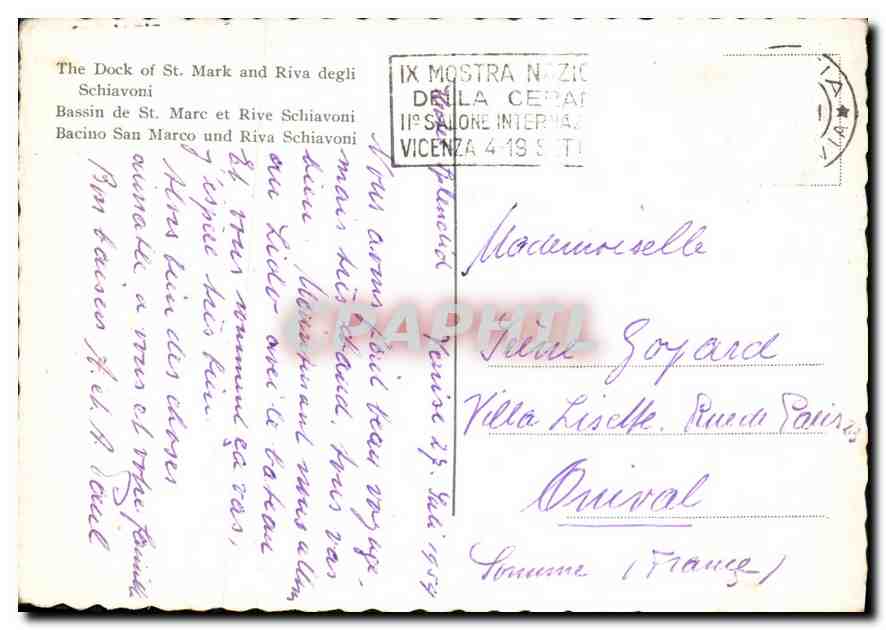 The Dock of St. Mark and Riva degli
Schiavoni
Bassin de St. Marc et Rive Schiavoni
Bacino San Marco und Riva Schiavoni
IX MOSTRA NAZIO
DELLA CERAM
IIº SALONE INTERNAZ
VICENZA 4-19 SETT
splendid Venise 27. Juli 1959
Nous avons fait beau voyage.
mais très chaud. tous vas
bien. Maintenant nous allons
au Lido avec le bateau
Et vous comment ça vas,
j'espère très bien.
Alors bien des choses
aimable a vous et votre famille
Bon baisers A. et A Paul
Mademoiselle
Irène Goyard
Villa Lisette. Rue de Paris
Onival
Somme (France)
CPAPHIL